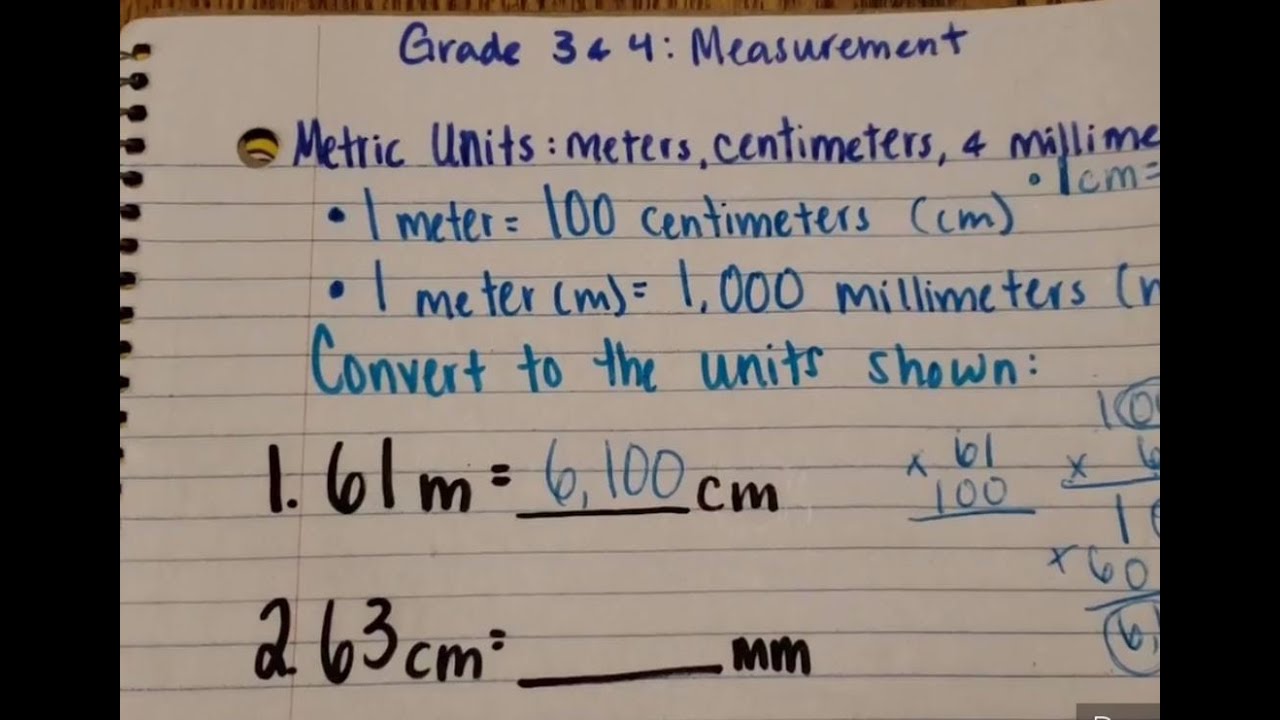 Grade 3 & 4: Measurement
Metric Units: meters, centimeters, & millime
• 1 cm=
• 1 meter= 100 centimeters (cm)
• 1 meter (m)= 1,000 millimeters (
Convert to the units shown:
1. 61 m = 6,100 cm
x 61
100
10
x 6
1
x 60
6,
2 63 cm = ______ mm